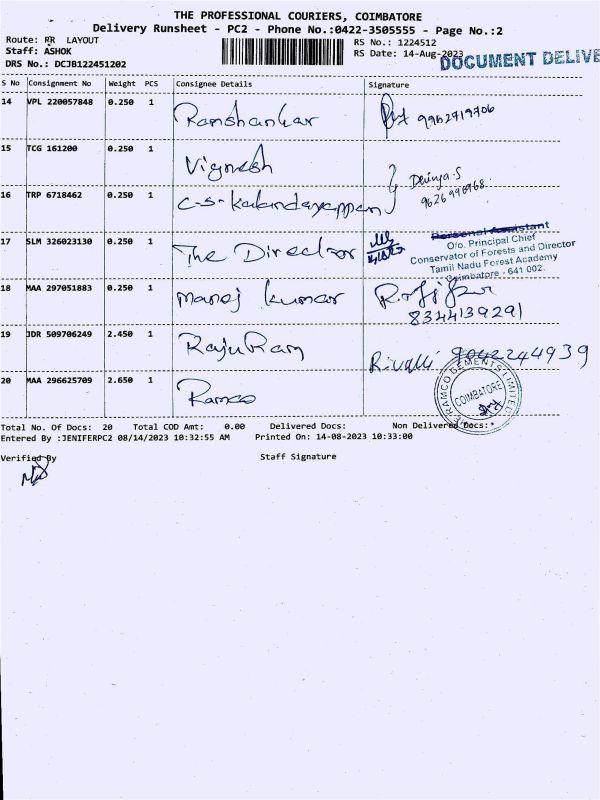 THE PROFESSIONAL COURIERS, COIMBATORE
Delivery Runsheet - PC2 - Phone No.:0422-3505555 - Page No.:2
Route: RR LAYOUT
RS No.: 1224512
Staff: ASHOK
RS Date: 14-Aug-2023
DOCUMENT DELIVE
DRS No.: DCJB122451202
S No Consignment No Weight PCS Consignee Details Signature
14 VPL 220057848 0.250 1 Ramshankar
15 TCG 161200 0.250 1 Vignesh
16 TRP 6718462 0.250 1 C-S-Kalandayappan
17 SLM 326023130 0.250 1 The Director
Personal Assistant
O/o. Principal Chief
Conservator of Forests and Director
Tamil Nadu Forest Academy
Coimbatore - 641 002.
18 MAA 297051883 0.250 1 Manoj Kumar
8344139291
19 JDR 509706249 2.450 1 RajuRam
9042244939
20 MAA 296625709 2.650 1 Ramco
COIMBATORE
Total No. Of Docs: 20 Total COD Amt: 0.00 Delivered Docs: Non Delivered Docs:
Entered By :JENIFERPC2 08/14/2023 10:32:55 AM Printed On: 14-08-2023 10:33:00
Verified By Staff Signature